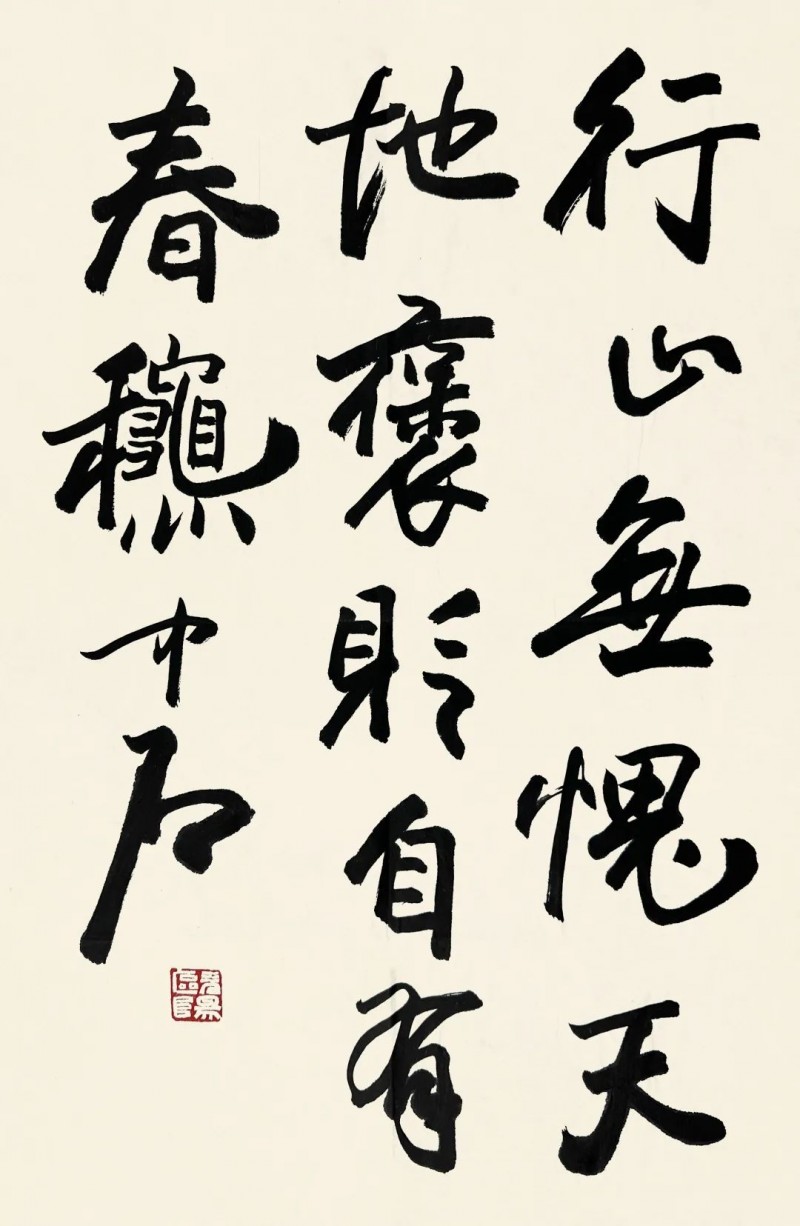 行止無愧天
地褒貶自有
春龝 中石